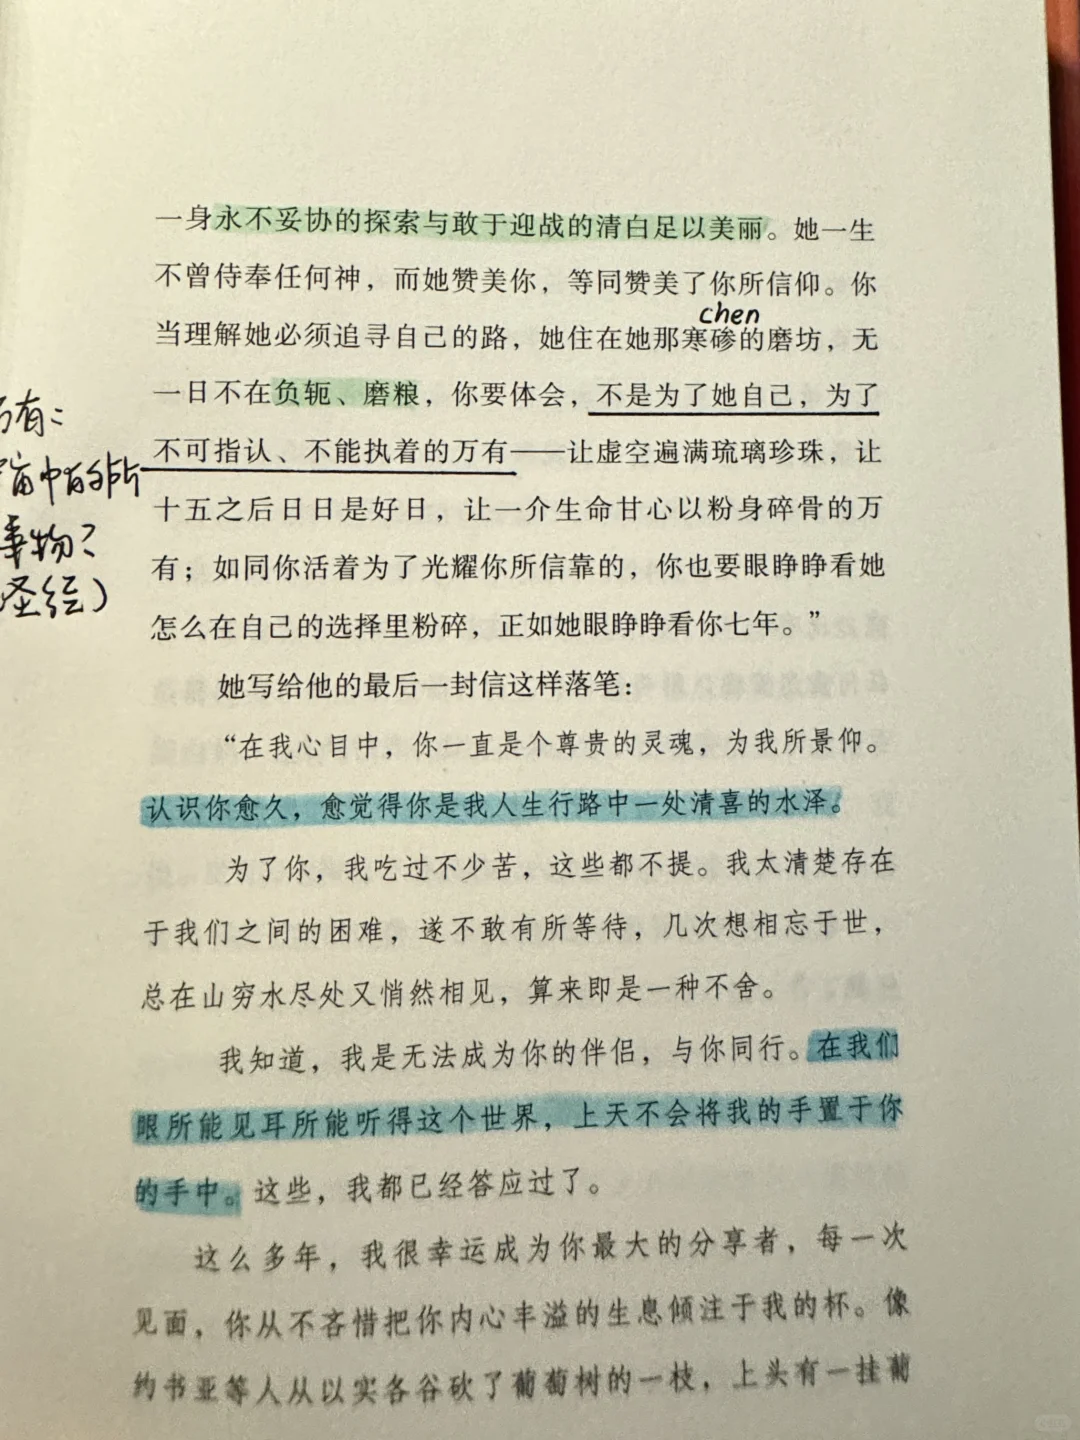 一身永不妥协的探索与敢于迎战的清白足以美丽。她一生
不曾侍奉任何神，而她赞美你，等同赞美了你所信仰。你
chen
当理解她必须追寻自己的路，她住在她那寒碜的磨坊，无
一日不在负轭、磨粮，你要体会，不是为了她自己，为了
不可指认、不能执着的万有——让虚空遍满琉璃珍珠，让
十五之后日日是好日，让一介生命甘心以粉身碎骨的万
有；如同你活着为了光耀你所信靠的，你也要眼睁睁看她
怎么在自己的选择里粉碎，正如她眼睁睁看你七年。”
有：
宙中的所
事物？
圣经）
她写给他的最后一封信这样落笔：
“在我心目中，你一直是个尊贵的灵魂，为我所景仰。
认识你愈久，愈觉得你是我人生行路中一处清喜的水泽。
为了你，我吃过不少苦，这些都不提。我太清楚存在
于我们之间的困难，遂不敢有所等待，几次想相忘于世，
总在山穷水尽处又悄然相见，算来即是一种不舍。
我知道，我是无法成为你的伴侣，与你同行。在我们
眼所能见耳所能听得这个世界，上天不会将我的手置于你
的手中。这些，我都已经答应过了。
这么多年，我很幸运成为你最大的分享者，每一次
见面，你从不吝惜把你内心丰溢的生息倾注于我的杯。像
约书亚等人从以实各谷砍了葡萄树的一枝，上头有一挂葡